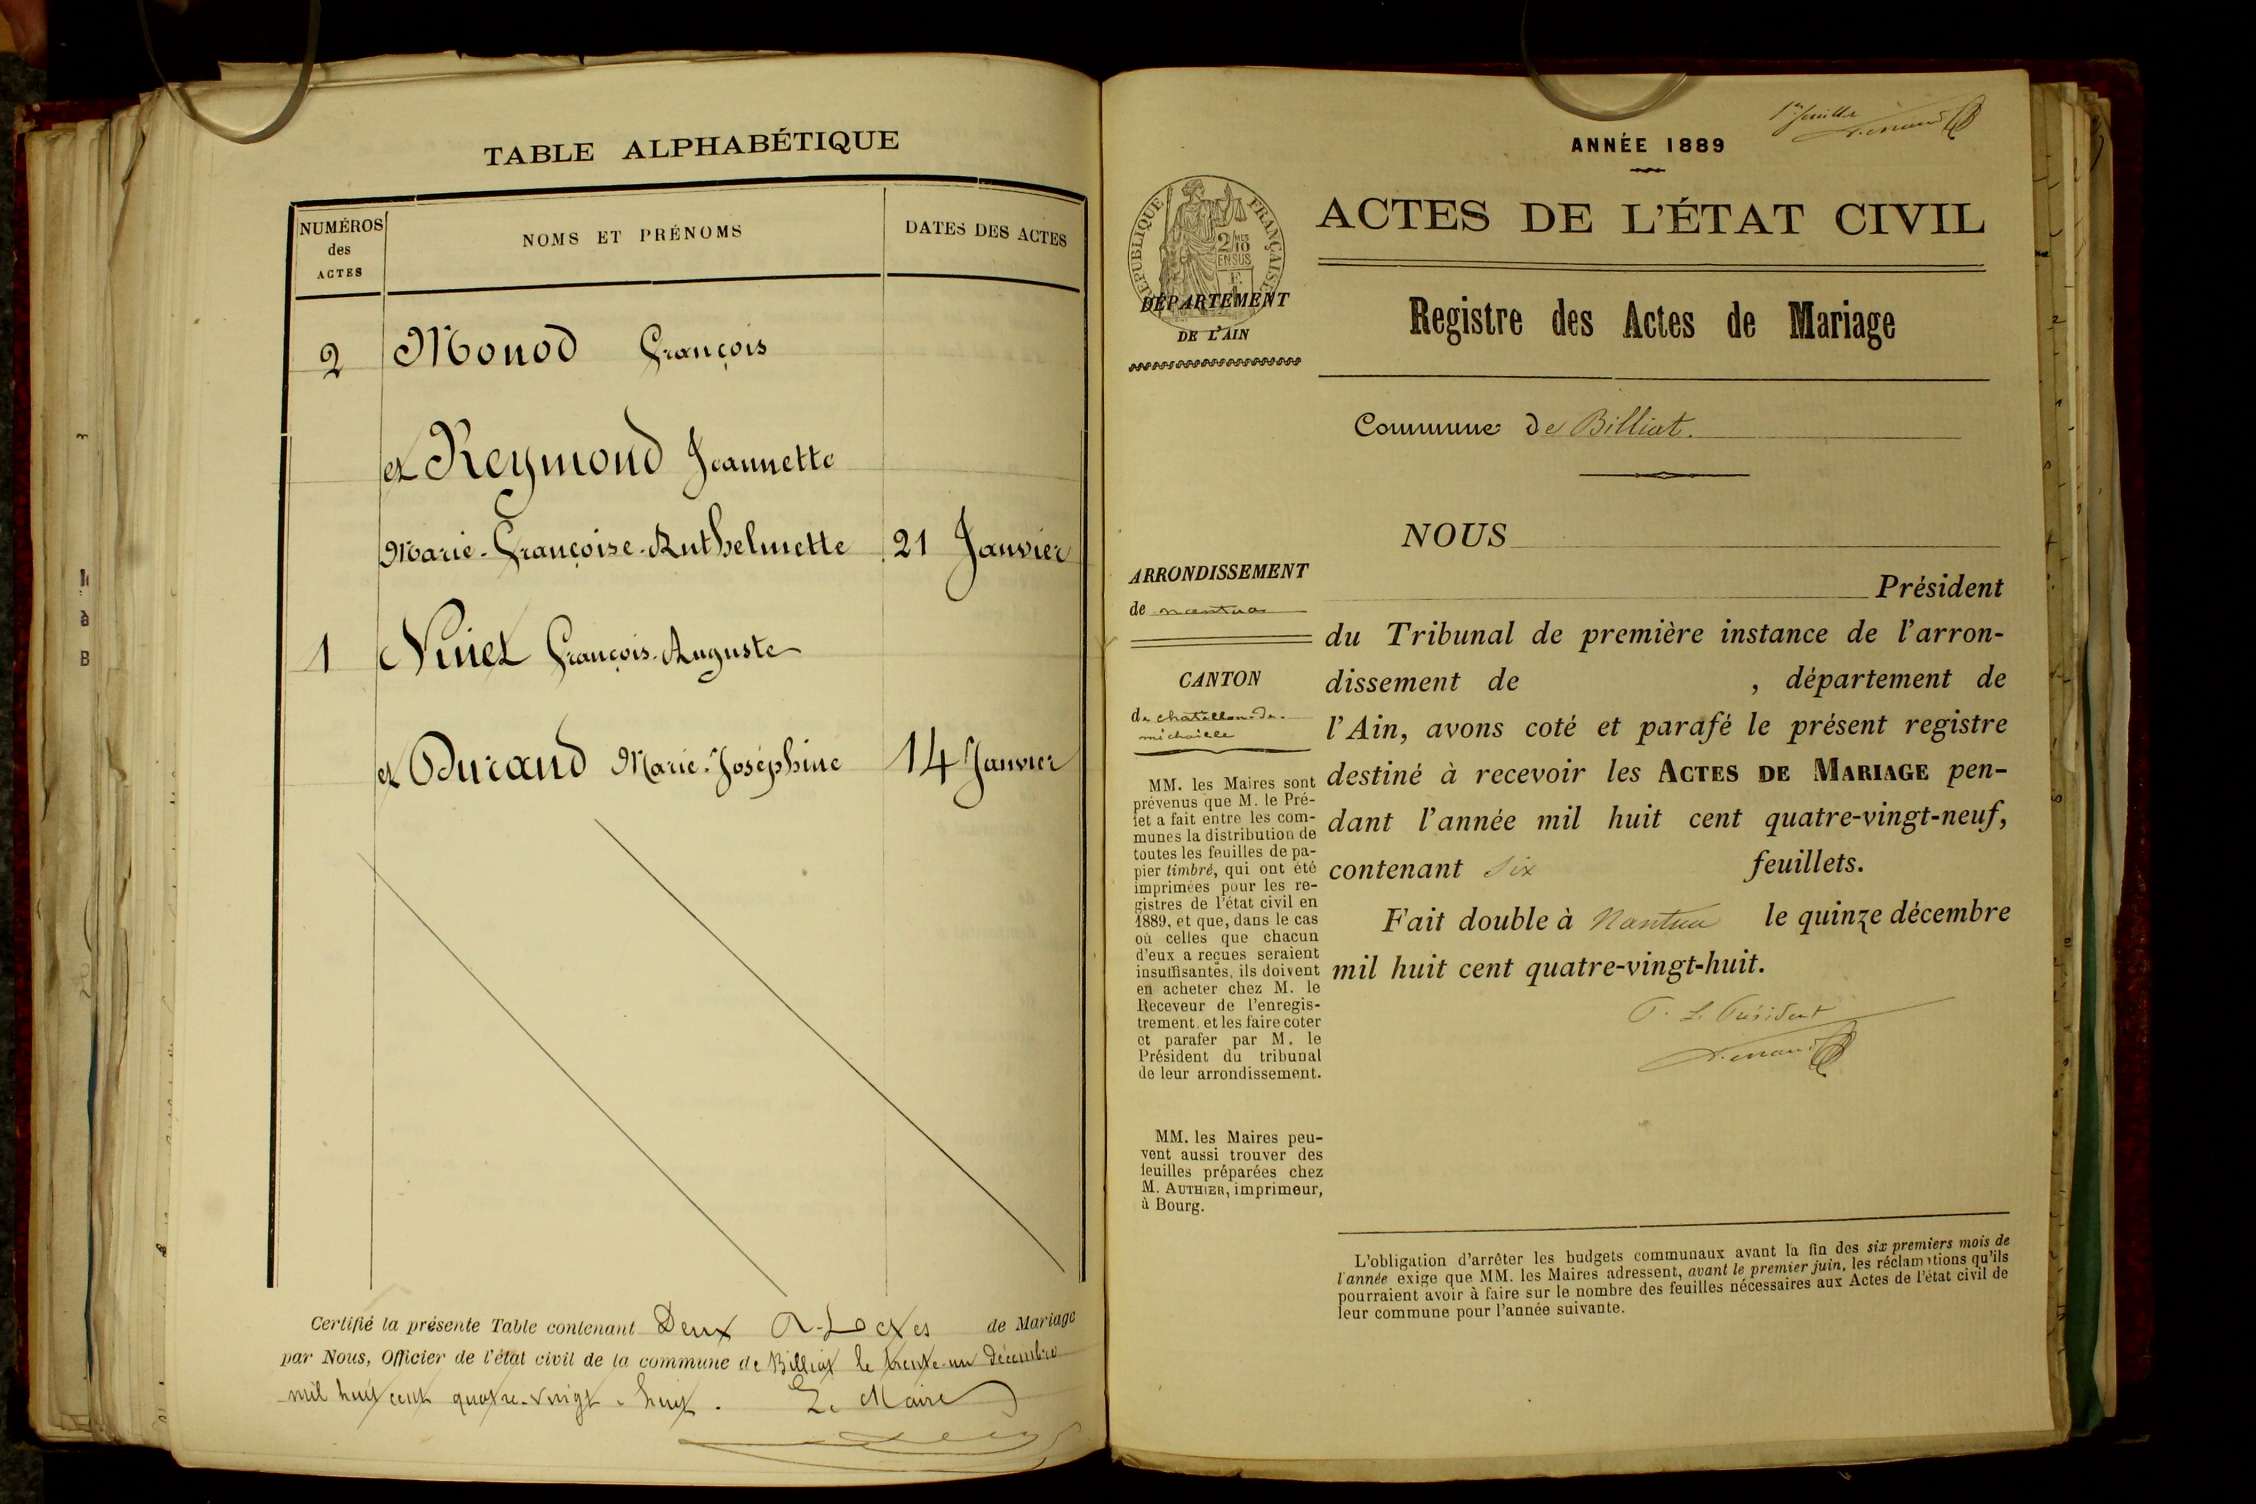 TABLE ALPHABÉTIQUE
NUMÉROS
des
ACTES
NOMS ET PRÉNOMS
DATES DES ACTES
2 Monod François
et Reymond Jeannette
Marie-Françoise-Anthelmette 21 Janvier
1 Ninet François-Auguste
et Durand Marie-Joséphine 14 Janvier
Certifié la présente Table contenant Deux Actes de Mariage
par Nous, Officier de l'état civil de la commune de Billiat le trente-un décembre
mil huit cent quatre-vingt-huit. Le Maire
1er feuillet
ANNÉE 1889
ACTES DE L'ÉTAT CIVIL
RÉPUBLIQUE FRANÇAISE
2/10
EN SUS
DÉPARTEMENT
DE L'AIN
Registre des Actes de Mariage
Commune de Billiat.
NOUS
Président
du Tribunal de première instance de l'arron-
dissement de , département de
l'Ain, avons coté et parafé le présent registre
destiné à recevoir les ACTES DE MARIAGE pen-
dant l'année mil huit cent quatre-vingt-neuf,
contenant six feuillets.
Fait double à Nantua le quinze décembre
mil huit cent quatre-vingt-huit.
P. L. Président
ARRONDISSEMENT
de nantua
CANTON
de chatillon-de-
michaille
MM. les Maires sont
prévenus que M. le Pré-
fet a fait entre les com-
munes la distribution de
toutes les feuilles de pa-
pier timbré, qui ont été
imprimées pour les re-
gistres de l'état civil en
1889, et que, dans le cas
où celles que chacun
d'eux a reçues seraient
insuffisantes, ils doivent
en acheter chez M. le
Receveur de l'enregis-
trement. et les faire coter
et parafer par M. le
Président du tribunal
de leur arrondissement.
MM. les Maires peu-
vent aussi trouver des
feuilles préparées chez
M. AUTHIER, imprimeur,
à Bourg.
L'obligation d'arrêter les budgets communaux avant la fin des six premiers mois de
l'année exige que MM. les Maires adressent, avant le premier juin, les réclamations qu'ils
pourraient avoir à faire sur le nombre des feuilles nécessaires aux Actes de l'état civil de
leur commune pour l'année suivante.